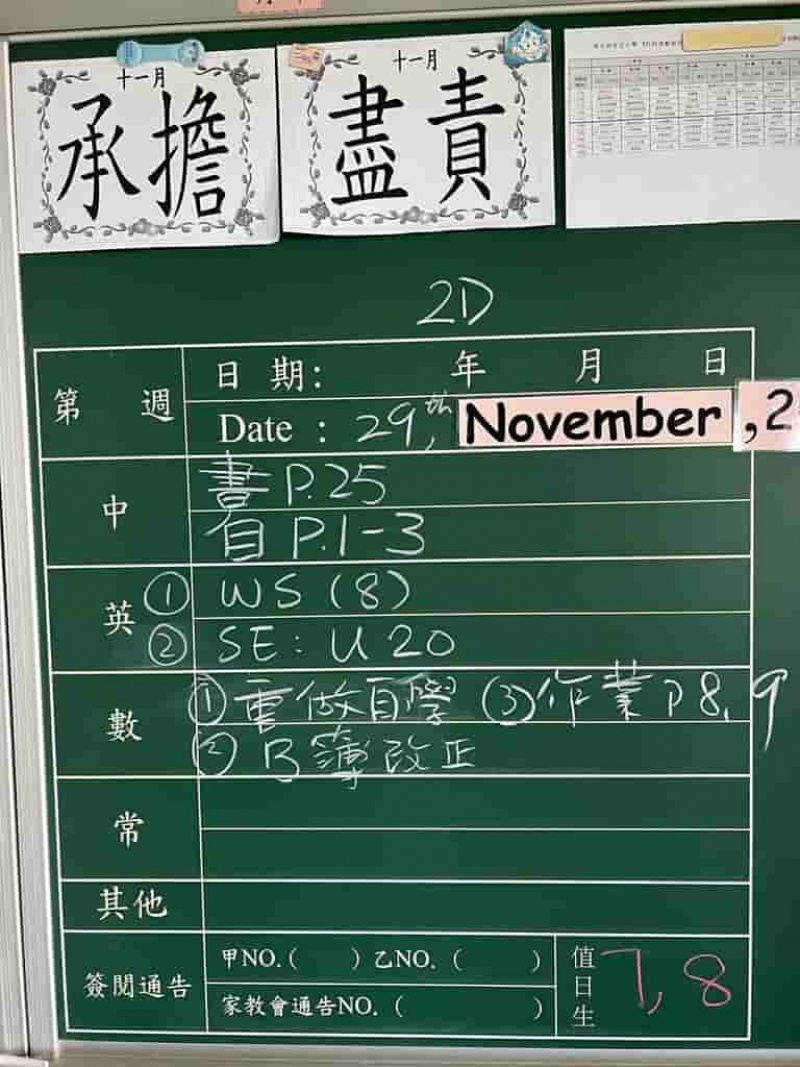 十一月
承擔
十一月
盡責
2D
第 週
日 期： 年 月 日
Date : 29th, November, 2
中
書 P.25
自 P.1-3
英
① WS (8)
② SE: U 20
數
① 重做自學 ③ 作業 P 8, 9
② B簿改正
常
其他
簽閱通告
甲NO.( ) 乙NO. ( )
家教會通告NO. ( )
值日生
7, 8